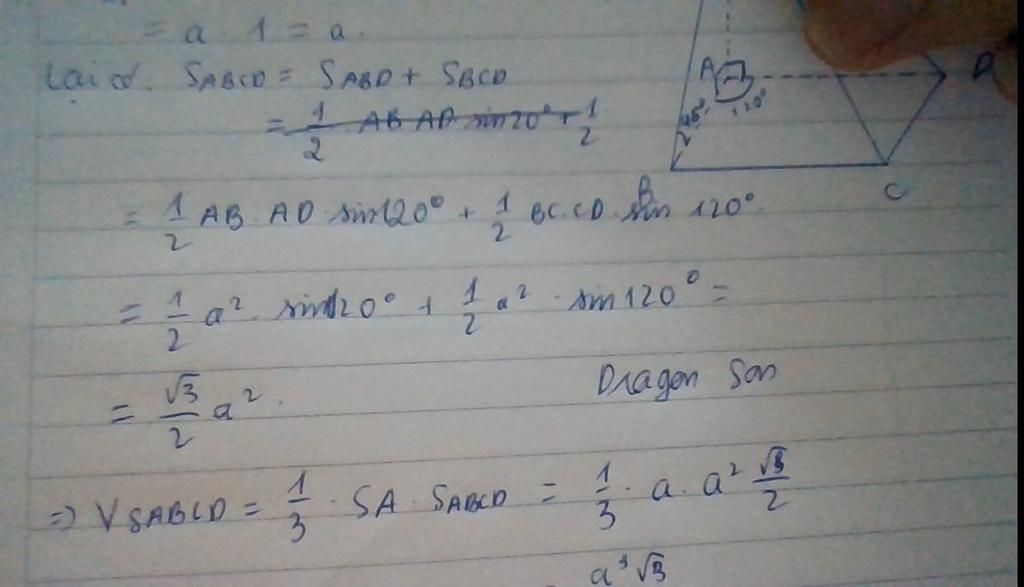 = a . 1 = a.
Lại có. SABCD = SABD + SBCD
= 1/2 AB AD sin120° + 1/2
= 1/2 AB . AD . sin120° + 1/2 BC.CD . sin 120°.
= 1/2 a² . sin120° + 1/2 a² . sin120° =
= √3/2 a².
Dragon Son
=> VSABCD = 1/3 . SA . SABCD = 1/3 . a . a² √3/2
a³√3
A
D
45°
120°
B
C